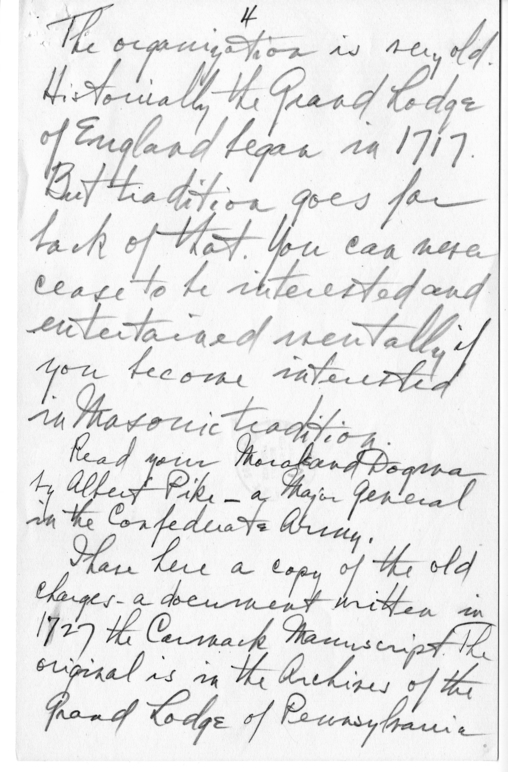 4
The organization is very old.
Historically the Grand Lodge
of England began in 1717.
But tradition goes far
back of that. You can never
cease to be interested and
entertained mentally if
you become interested
in Masonic tradition.
Read your Morals and Dogma
by Albert Pike - a Major General
in the Confederate Army.
I have here a copy of the old
charges - a document written in
1727 the Carmack Manuscript. The
original is in the Archives of the
Grand Lodge of Pennsylvania